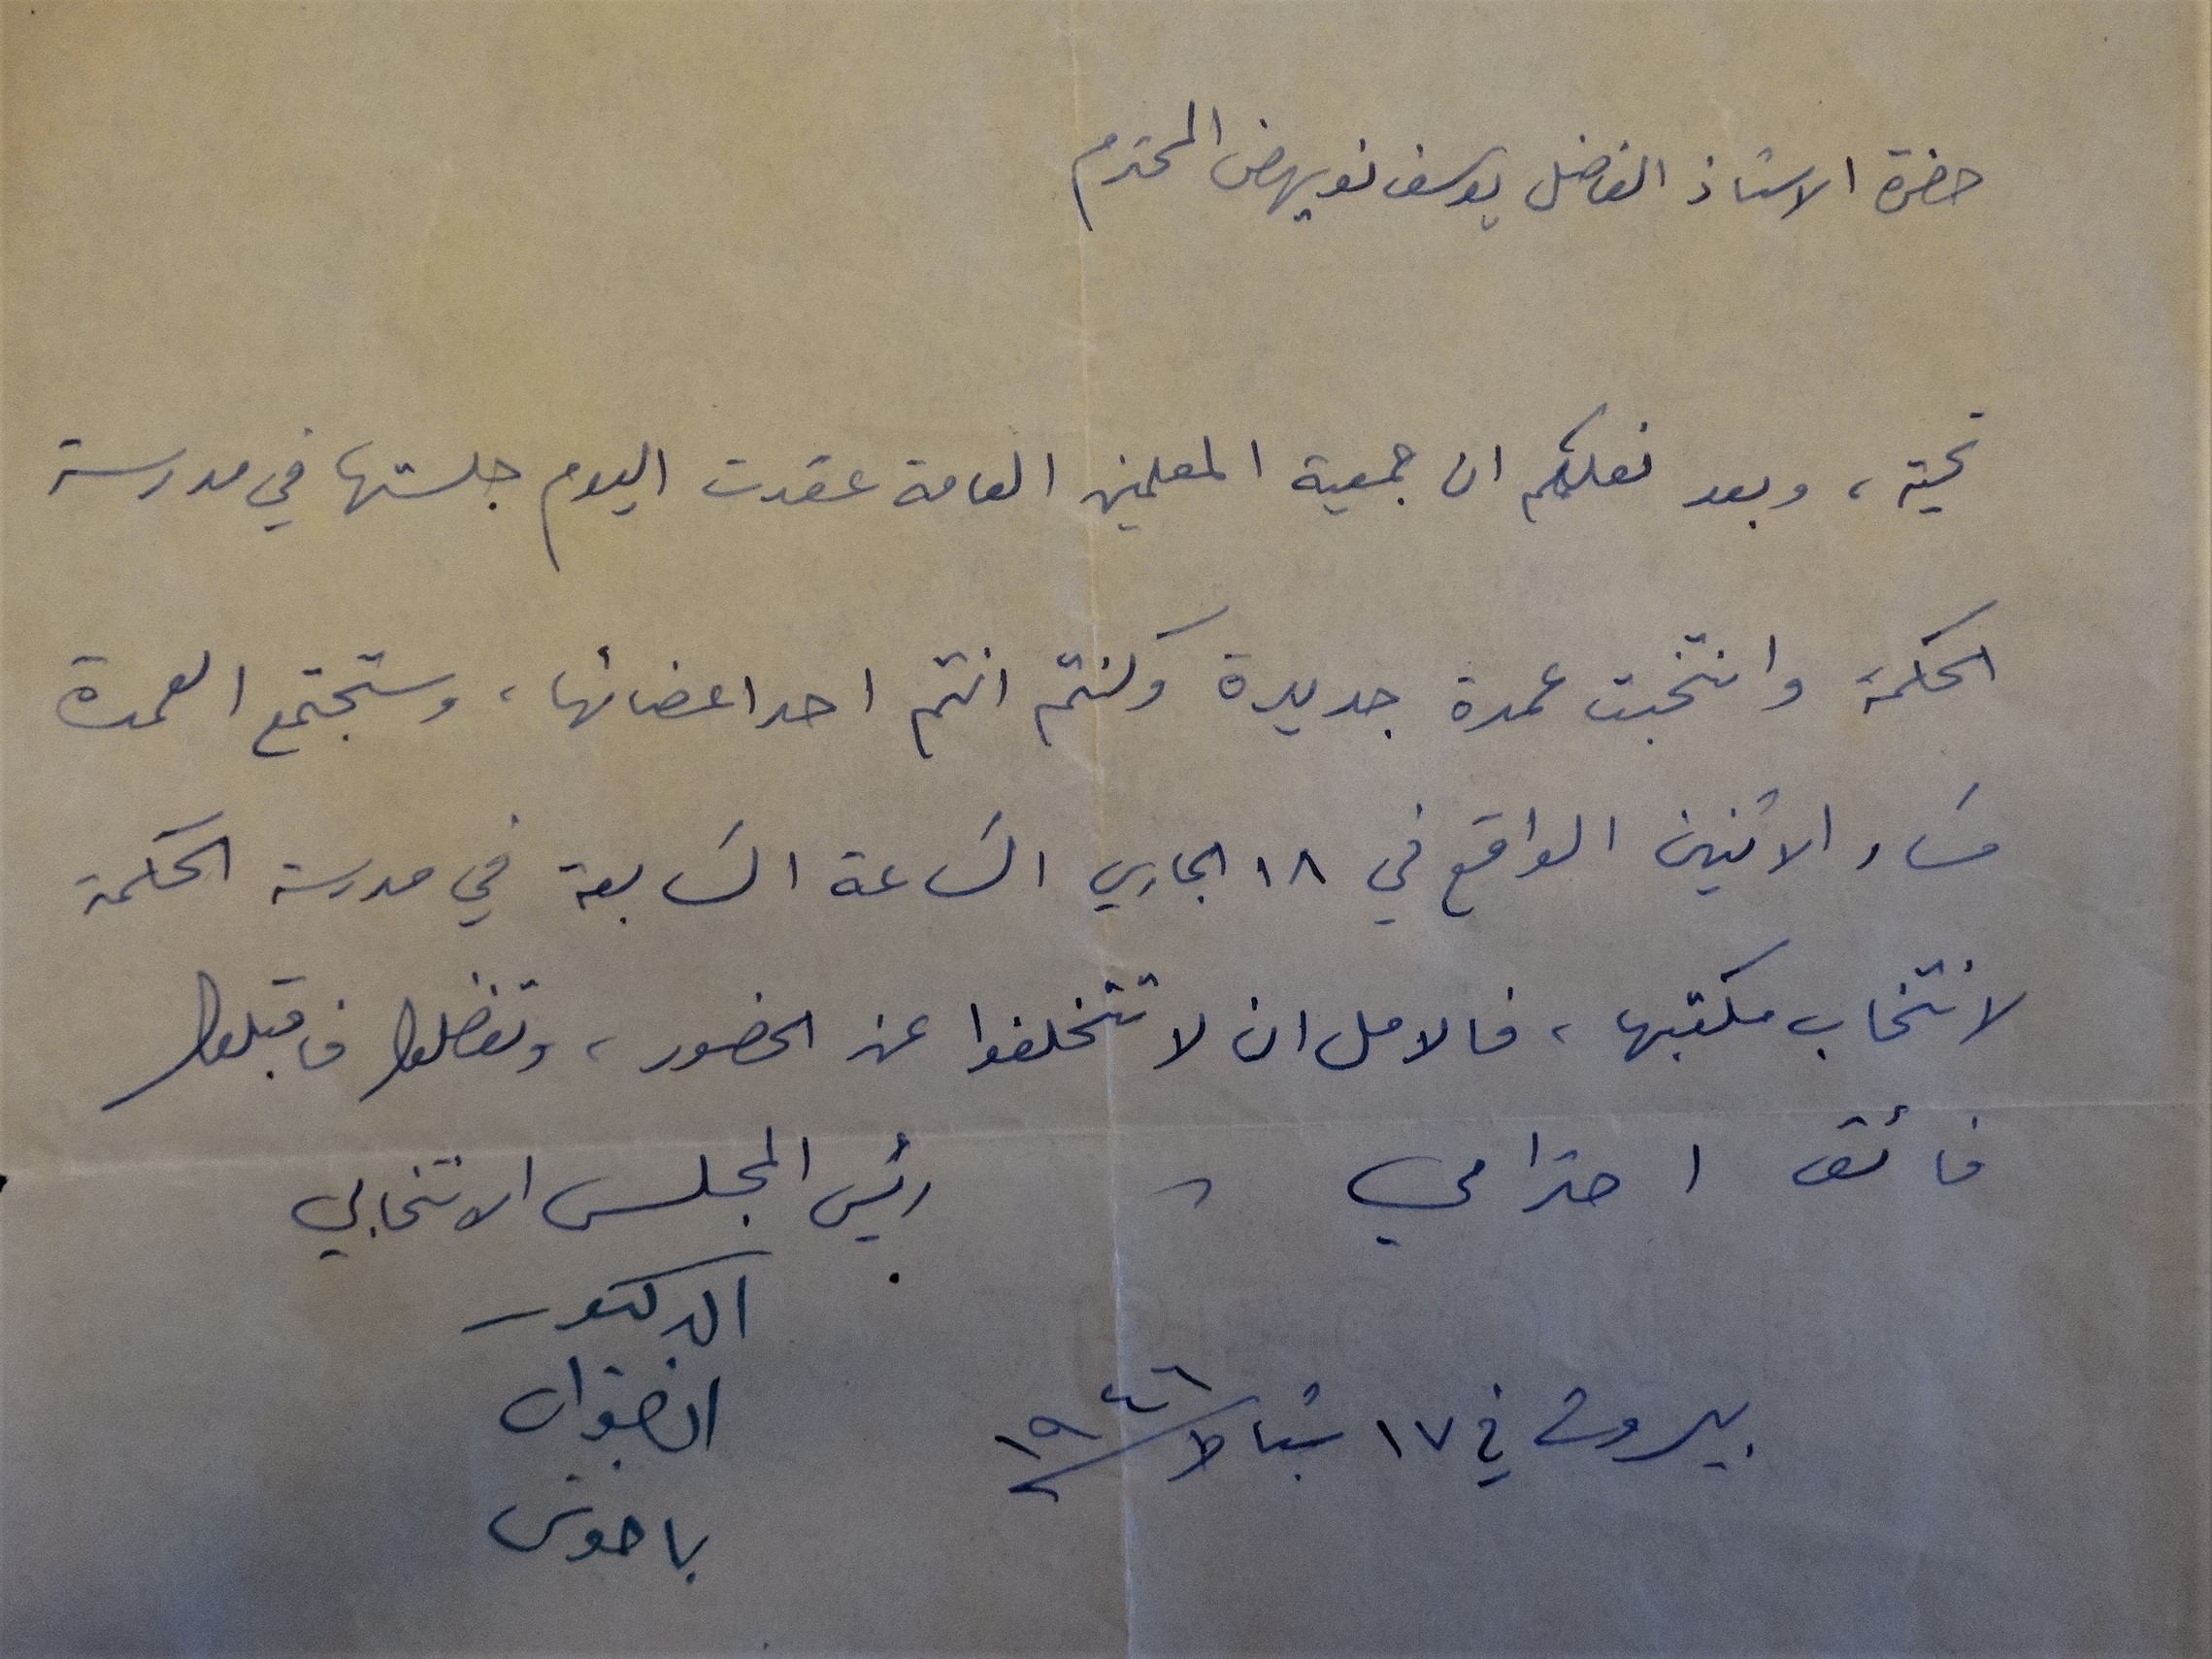 حضرة الاستاذ الفاضل يوسف نويهض المحترم
تحية ، وبعد نعلمكم ان جمعية المعلمين العامة عقدت اليوم جلستها في مدرسة
الحكمة وانتخبت عمدة جديدة وكنتم انتم احد اعضائها ، وستجتمع العمدة
مساء الاثنين الواقع في ١٨ الجاري الساعة السابعة في مدرسة الحكمة
لانتخاب مكتبها ، فالامل ان لا تتخلفوا عن الحضور ، وتفضلوا فاقبلوا
فائق احترامي رئيس المجلس الانتخابي
الدكتور
انطوان
بيروت في ١٧ شباط ١٩٤٦